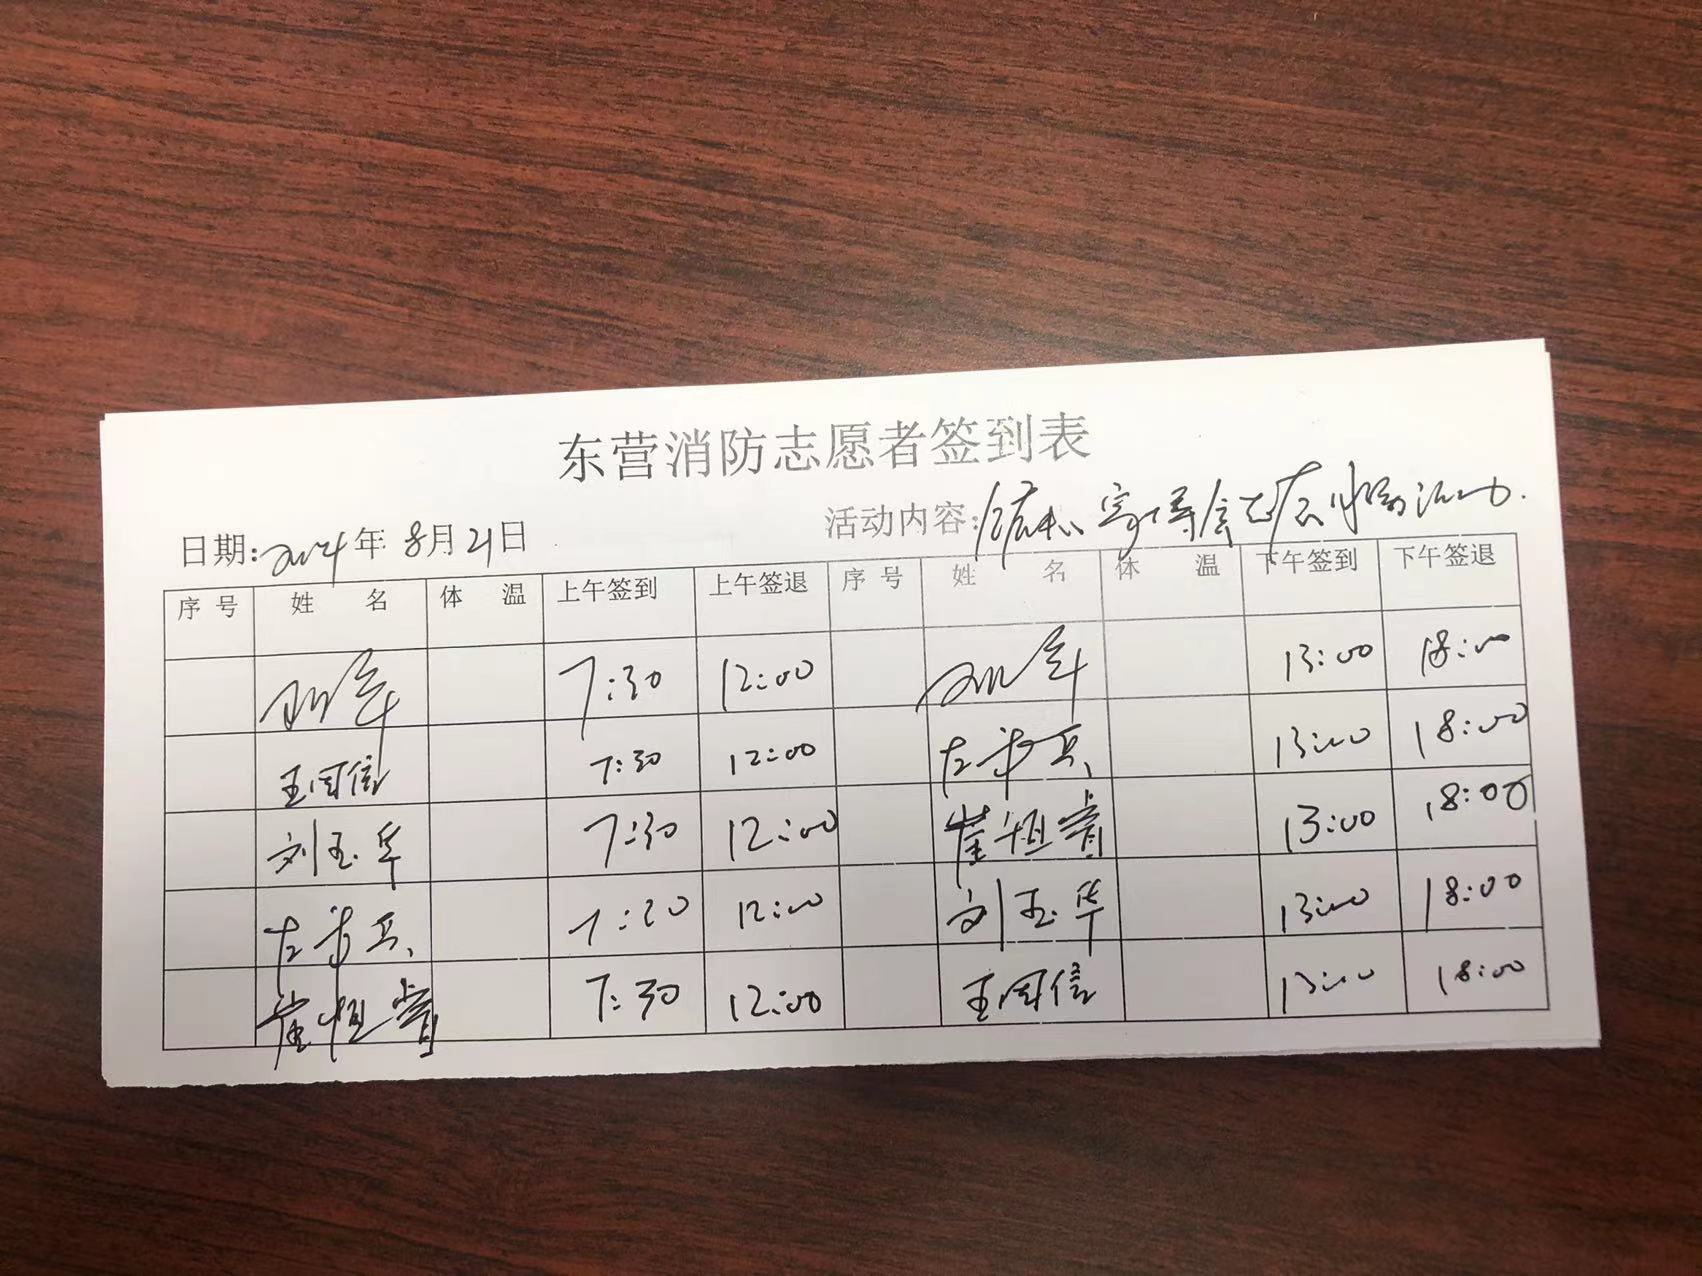 东营消防志愿者签到表
日期:2024年8月21日 活动内容:
序号 姓名 体温 上午签到 上午签退 序号 姓名 体温 下午签到 下午签退
7:30 12:00 13:00 18:00
王同信 7:30 12:00 左步兵 13:00 18:00
刘玉华 7:30 12:00 崔恒省 13:00 18:00
左步兵 7:30 12:00 刘玉华 13:00 18:00
崔恒省 7:30 12:00 王同信 13:00 18:00